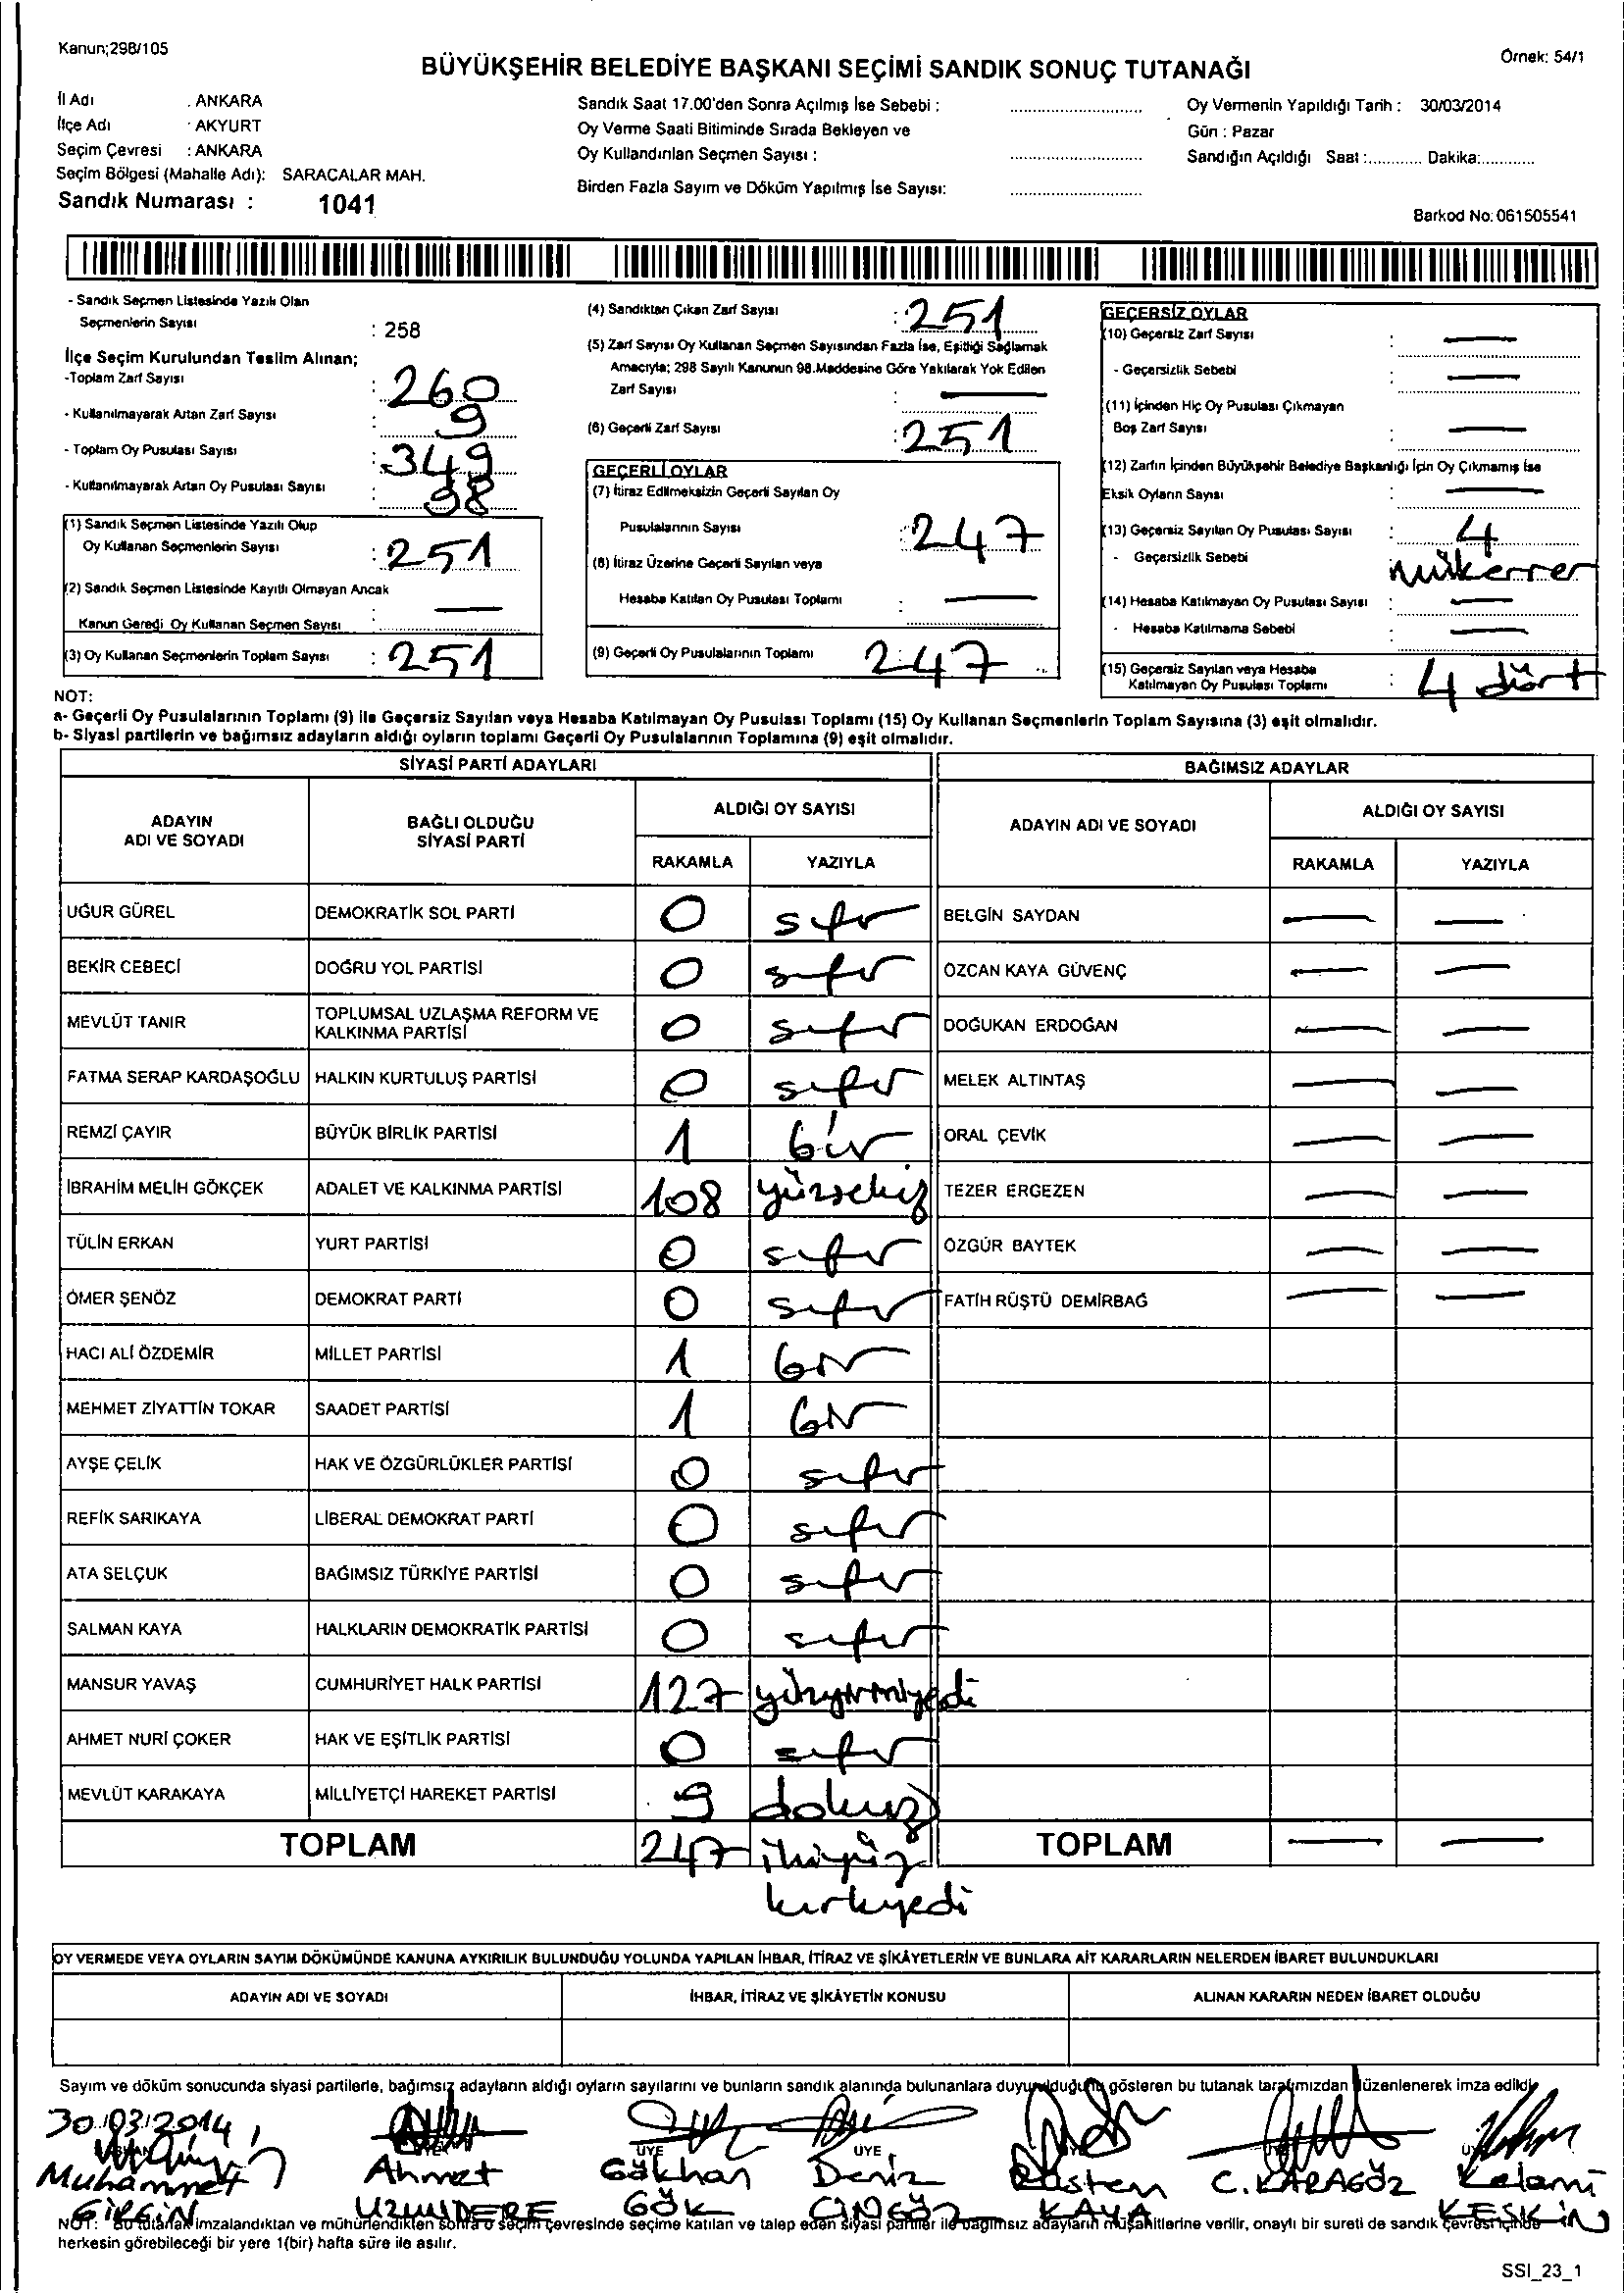 Kanun;298/105
Örnek: 54/1
BÜYÜKŞEHİR BELEDİYE BAŞKANI SEÇİMİ SANDIK SONUÇ TUTANAĞI
İl Adı : ANKARA
İlçe Adı : AKYURT
Seçim Çevresi : ANKARA
Seçim Bölgesi (Mahalle Adı): SARACALAR MAH.
Sandık Numarası : 1041
Sandık Saat 17.00'den Sonra Açılmış İse Sebebi :
Oy Verme Saati Bitiminde Sırada Bekleyen ve
Oy Kullandırılan Seçmen Sayısı :
Birden Fazla Sayım ve Döküm Yapılmış İse Sayısı:
Oy Vermenin Yapıldığı Tarih : 30/03/2014
Gün : Pazar
Sandığın Açıldığı Saat :............ Dakika:............
Barkod No: 061505541
- Sandık Seçmen Listesinde Yazılı Olan
Seçmenlerin Sayısı : 258
İlçe Seçim Kurulundan Teslim Alınan;
-Toplam Zarf Sayısı : 260
- Kullanılmayarak Artan Zarf Sayısı : 9
- Toplam Oy Pusulası Sayısı : 349
- Kullanılmayarak Artan Oy Pusulası Sayısı : 98
(1) Sandık Seçmen Listesinde Yazılı Olup
Oy Kullanan Seçmenlerin Sayısı : 251
(2) Sandık Seçmen Listesinde Kayıtlı Olmayan Ancak
Kanun Gereği Oy Kullanan Seçmen Sayısı : —
(3) Oy Kullanan Seçmenlerin Toplam Sayısı : 251
(4) Sandıktan Çıkan Zarf Sayısı : 251
(5) Zarf Sayısı Oy Kullanan Seçmen Sayısından Fazla İse, Eşitliği Sağlamak
Amacıyla; 298 Sayılı Kanunun 98.Maddesine Göre Yakılarak Yok Edilen
Zarf Sayısı : —
(6) Geçerli Zarf Sayısı : 251
GEÇERLİ OYLAR
(7) İtiraz Edilmeksizin Geçerli Sayılan Oy
Pusulalarının Sayısı : 247
(8) İtiraz Üzerine Geçerli Sayılan veya
Hesaba Katılan Oy Pusulası Toplamı : —
(9) Geçerli Oy Pusulalarının Toplamı : 247
GEÇERSİZ OYLAR
(10) Geçersiz Zarf Sayısı : —
- Geçersizlik Sebebi : —
(11) İçinden Hiç Oy Pusulası Çıkmayan
Boş Zarf Sayısı : —
(12) Zarfın İçinden Büyükşehir Belediye Başkanlığı İçin Oy Çıkmamış İse
Eksik Oyların Sayısı : —
(13) Geçersiz Sayılan Oy Pusulası Sayısı : 4
- Geçersizlik Sebebi : mükerrer
(14) Hesaba Katılmayan Oy Pusulası Sayısı : —
- Hesaba Katılmama Sebebi : —
(15) Geçersiz Sayılan veya Hesaba
Katılmayan Oy Pusulası Toplamı : 4 dört
NOT:
a- Geçerli Oy Pusulalarının Toplamı (9) ile Geçersiz Sayılan veya Hesaba Katılmayan Oy Pusulası Toplamı (15) Oy Kullanan Seçmenlerin Toplam Sayısına (3) eşit olmalıdır.
b- Siyasi partilerin ve bağımsız adayların aldığı oyların toplamı Geçerli Oy Pusulalarının Toplamına (9) eşit olmalıdır.
SİYASİ PARTİ ADAYLARI
ADAYIN ADI VE SOYADI
BAĞLI OLDUĞU SİYASİ PARTİ
ALDIĞI OY SAYISI
RAKAMLA YAZIYLA
UĞUR GÜREL DEMOKRATİK SOL PARTİ 0 sıfır
BEKİR CEBECİ DOĞRU YOL PARTİSİ 0 sıfır
MEVLÜT TANIR TOPLUMSAL UZLAŞMA REFORM VE KALKINMA PARTİSİ 0 sıfır
FATMA SERAP KARDAŞOĞLU HALKIN KURTULUŞ PARTİSİ 0 sıfır
REMZİ ÇAYIR BÜYÜK BİRLİK PARTİSİ 1 bir
İBRAHİM MELİH GÖKÇEK ADALET VE KALKINMA PARTİSİ 108 yüzsekiz
TÜLİN ERKAN YURT PARTİSİ 0 sıfır
ÖMER ŞENÖZ DEMOKRAT PARTİ 0 sıfır
HACI ALİ ÖZDEMİR MİLLET PARTİSİ 1 bir
MEHMET ZİYATTİN TOKAR SAADET PARTİSİ 1 bir
AYŞE ÇELİK HAK VE ÖZGÜRLÜKLER PARTİSİ 0 sıfır
REFİK SARIKAYA LİBERAL DEMOKRAT PARTİ 0 sıfır
ATA SELÇUK BAĞIMSIZ TÜRKİYE PARTİSİ 0 sıfır
SALMAN KAYA HALKLARIN DEMOKRATİK PARTİSİ 0 sıfır
MANSUR YAVAŞ CUMHURİYET HALK PARTİSİ 127 yüzyirmiyedi
AHMET NURİ ÇOKER HAK VE EŞİTLİK PARTİSİ 0 sıfır
MEVLÜT KARAKAYA MİLLİYETÇİ HAREKET PARTİSİ 9 dokuz
TOPLAM 247 ikiyüz
kırkyedi
BAĞIMSIZ ADAYLAR
ADAYIN ADI VE SOYADI
ALDIĞI OY SAYISI
RAKAMLA YAZIYLA
BELGİN SAYDAN — —
ÖZCAN KAYA GÜVENÇ — —
DOĞUKAN ERDOĞAN — —
MELEK ALTINTAŞ — —
ORAL ÇEVİK — —
TEZER ERGEZEN — —
ÖZGÜR BAYTEK — —
FATİH RÜŞTÜ DEMİRBAĞ — —
TOPLAM — —
OY VERMEDE VEYA OYLARIN SAYIM DÖKÜMÜNDE KANUNA AYKIRILIK BULUNDUĞU YOLUNDA YAPILAN İHBAR, İTİRAZ VE ŞİKÂYETLERİN VE BUNLARA AİT KARARLARIN NELERDEN İBARET BULUNDUKLARI
ADAYIN ADI VE SOYADI
İHBAR, İTİRAZ VE ŞİKÂYETİN KONUSU
ALINAN KARARIN NEDEN İBARET OLDUĞU
Sayım ve döküm sonucunda siyasi partilerle, bağımsız adayların aldığı oyların sayılarını ve bunların sandık alanında bulunanlara duyurulduğunu gösteren bu tutanak tarafımızdan düzenlenerek imza edildi.
30/03/2014
BAŞKAN ÜYE ÜYE ÜYE ÜYE ÜYE
Muhammet Ahmet Gökhan Deniz Rüstem C. KARAGÖZ Kelami
GİRGİN UZUNDERE GÖK CİNGÖZ KAYA KESKİN
NOT: Bu tutanak imzalandıktan ve mühürlendikten sonra o seçim çevresinde seçime katılan ve talep eden siyasi partiler ile bağımsız adayların müşahitlerine verilir, onaylı bir sureti de sandık çevresi içinde
herkesin görebileceği bir yere 1(bir) hafta süre ile asılır.
SSI_23_1